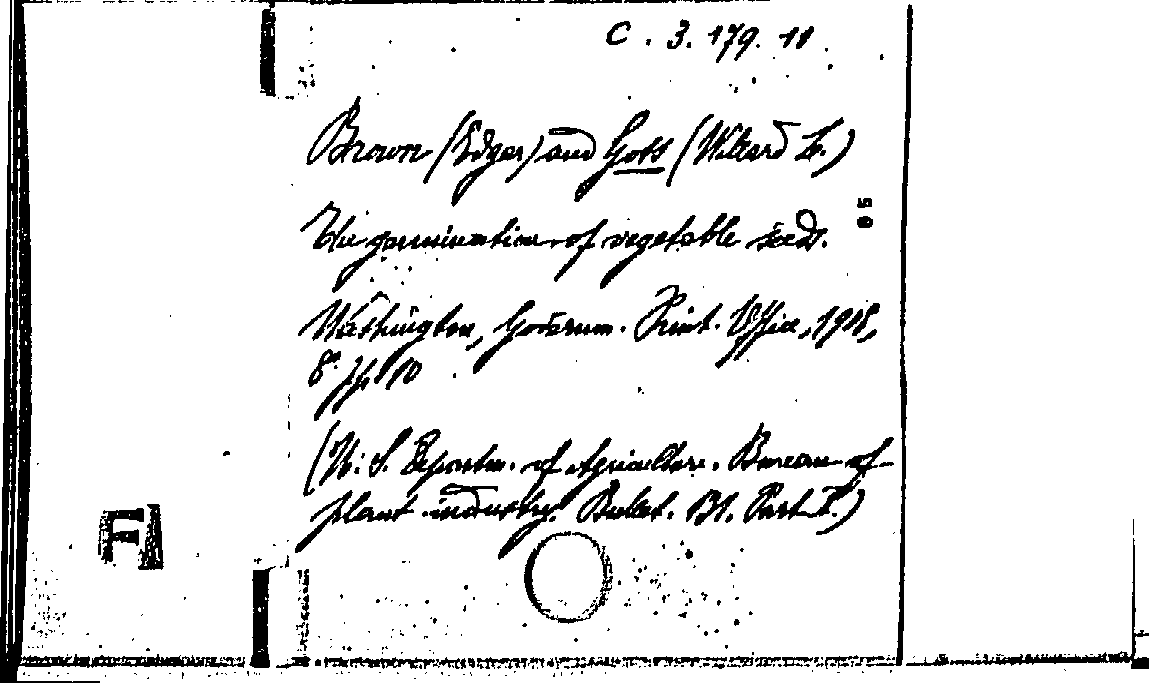 C. 3. 179. 11
Brown (Edgar) and Goss (Willard L.)
The germination of vegetable seeds.
Washington, Governm. Print. Office, 1908,
8º. pp. 10
(U. S. Departm. of Agriculture. Bureau of
plant industry. Bullet. 131. Part I.)